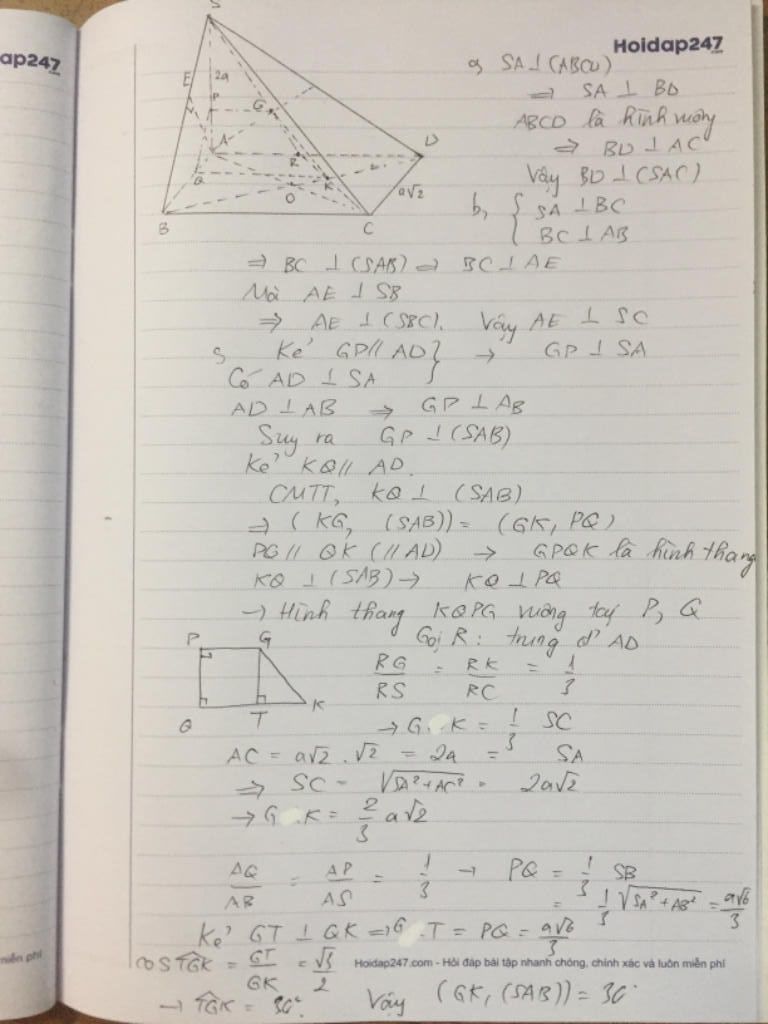 ap247
.com
Hoidap247
.com
S
E
2a
P
G
A
D
R
Q
K
a√2
O
B
C
a, SA ⊥ (ABCD)
⇒ SA ⊥ BD
ABCD là hình vuông
⇒ BD ⊥ AC
Vậy BD ⊥ (SAC)
b, { SA ⊥ BC
BC ⊥ AB
⇒ BC ⊥ (SAB) ⇒ BC ⊥ AE
Mà AE ⊥ SB
⇒ AE ⊥ (SBC). Vậy AE ⊥ SC
Kẻ GP // AD } → GP ⊥ SA
Có AD ⊥ SA
AD ⊥ AB ⇒ GP ⊥ AB
Suy ra GP ⊥ (SAB)
Kẻ KQ // AD.
CMTT, KQ ⊥ (SAB)
⇒ (KG, (SAB)) = (GK, PQ)
PG // QK (// AD) → GPQK là hình thang
KQ ⊥ (SAB) → KQ ⊥ PQ
→ Hình thang KQPG vuông tại P, Q
Gọi R : trung đ' AD
P G
Q T K
RG/RS = RK/RC = 1/3
→ GK = 1/3 SC
AC = a√2 . √2 = 2a = SA
⇒ SC = √SA² + AC² = 2a√2
→ GK = 2/3 a√2
AQ/AB = AP/AS = 1/3 → PQ = 1/3 SB
= 1/3 √SA² + AB² = a√6/3
Kẻ GT ⊥ QK ⇒ GT = PQ = a√6/3
cos TGK = GT/GK = √3/2
Hoidap247.com - Hỏi đáp bài tập nhanh chóng, chính xác và luôn miễn phí
miễn phí
→ TGK = 30°. Vậy (GK, (SAB)) = 30°